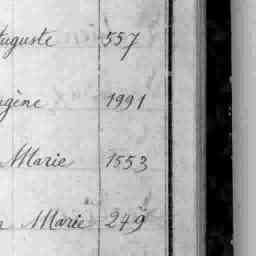 Auguste 557
gène 1991
Marie 1553
Marie 249